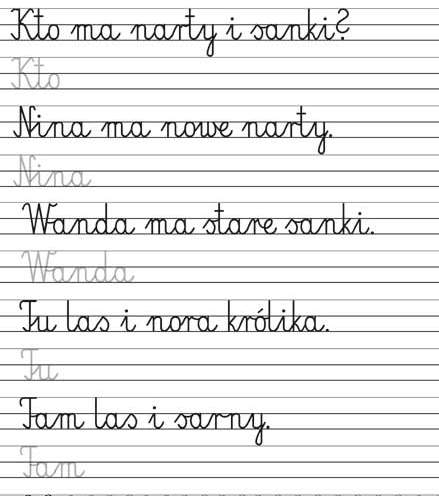 Kto ma narty i sanki?
Kto
Nina ma nowe narty.
Nina
Wanda ma stare sanki.
Wanda
Tu las i nora królika.
Tu
Tam las i sarny.
Tam